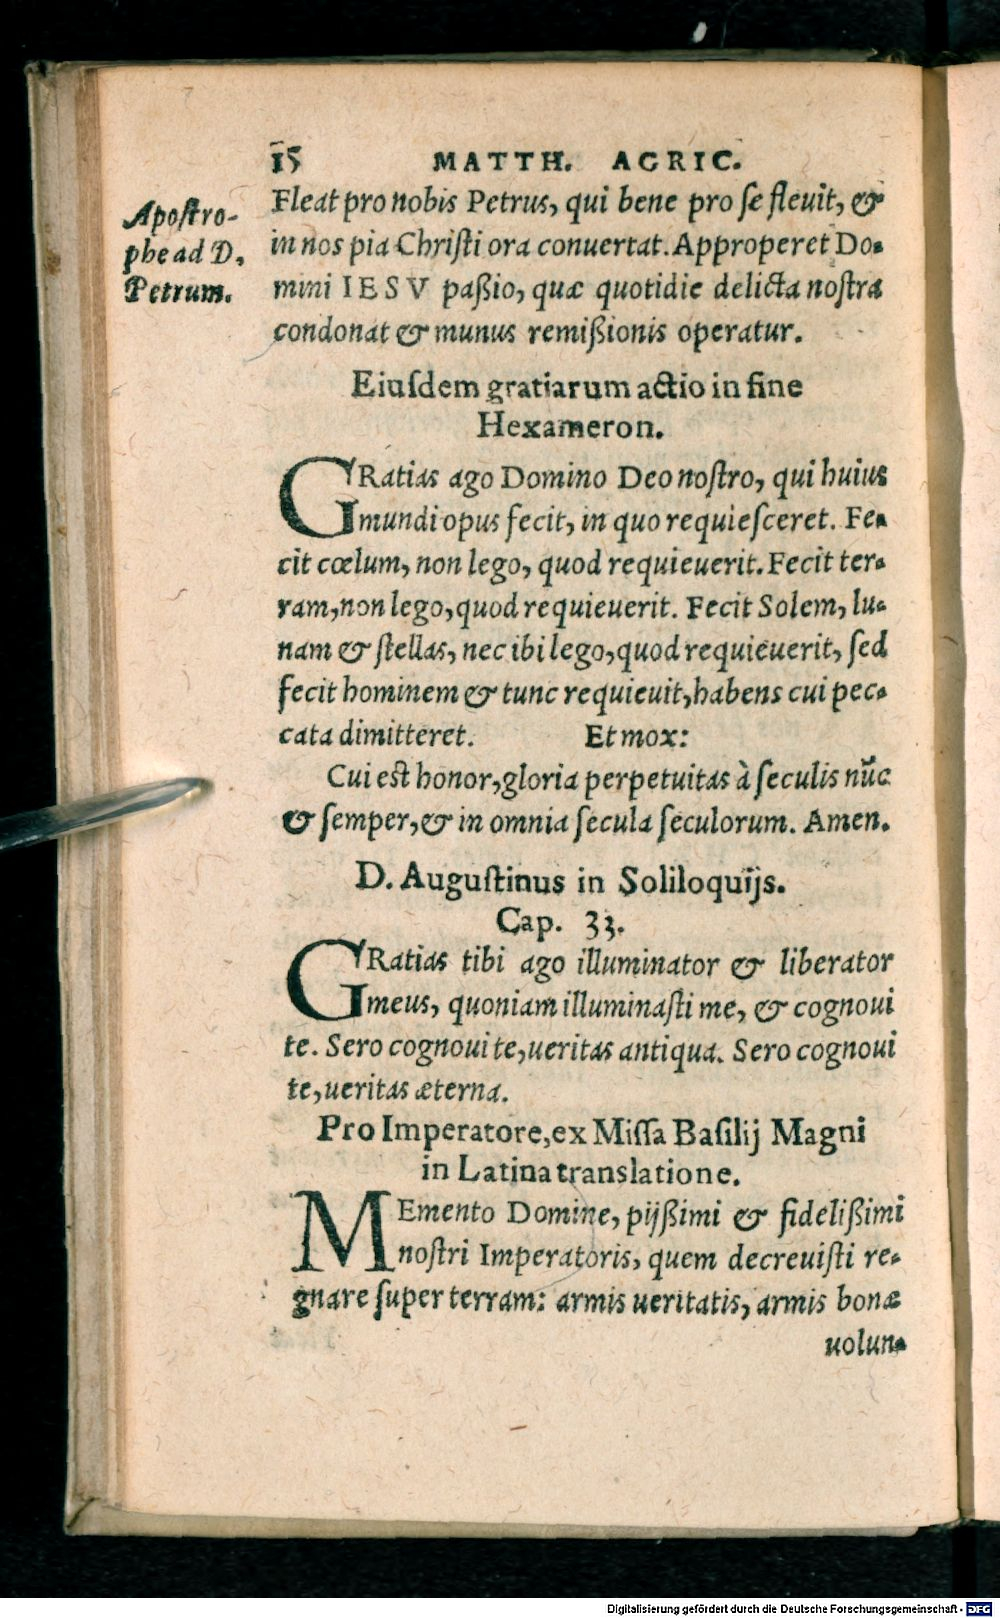 15 MATTH. AGRIC.
Apostro-
phe ad D.
Petrum.
Fleat pro nobis Petrus, qui bene pro ſe fleuit, &
in nos pia Chriſti ora conuertat. Approperet Do-
mini IESV paßio, quæ quotidie delicta noſtra
condonat & munus remißionis operatur.
Eiuſdem gratiarum actio in fine
Hexameron.
GRatias ago Domino Deo noſtro, qui huius
mundi opus fecit, in quo requieſceret. Fe-
cit cœlum, non lego, quod requieuerit. Fecit ter-
ram, non lego, quod requieuerit. Fecit Solem, lu-
nam & ſtellas, nec ibi lego, quod requieuerit, ſed
fecit hominem & tunc requieuit, habens cui pec-
cata dimitteret. Et mox:
Cui eſt honor, gloria perpetuitas à ſeculis nũc
& ſemper, & in omnia ſecula ſeculorum. Amen.
D. Auguſtinus in Soliloquijs.
Cap. 33.
GRatias tibi ago illuminator & liberator
meus, quoniam illuminaſti me, & cognoui
te. Sero cognoui te, ueritas antiqua. Sero cognoui
te, ueritas æterna.
Pro Imperatore, ex Miſſa Baſilij Magni
in Latina translatione.
MEmento Domine, pijßimi & fidelißimi
noſtri Imperatoris, quem decreuiſti re-
gnare ſuper terram: armis ueritatis, armis bonæ
uolun-
Digitalisierung gefördert durch die Deutsche Forschungsgemeinschaft - DFG